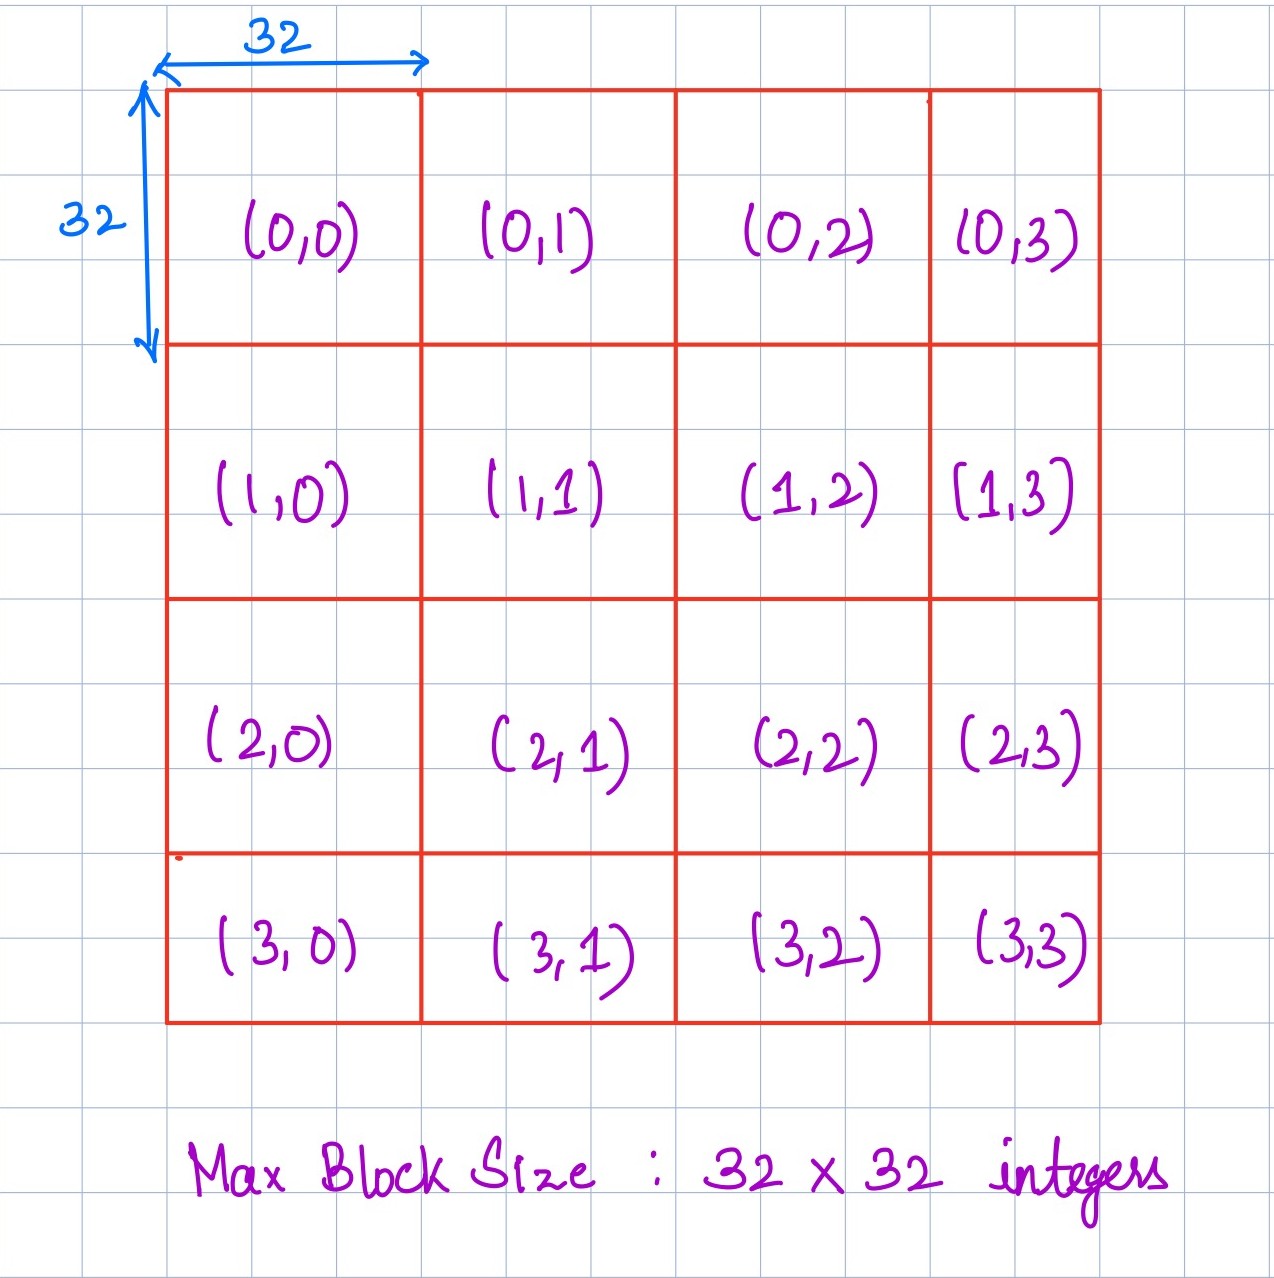 32
32
(0,0) (0,1) (0,2) (0,3)
(1,0) (1,1) (1,2) (1,3)
(2,0) (2,1) (2,2) (2,3)
(3,0) (3,1) (3,2) (3,3)
Max Block Size : 32 x 32 integers